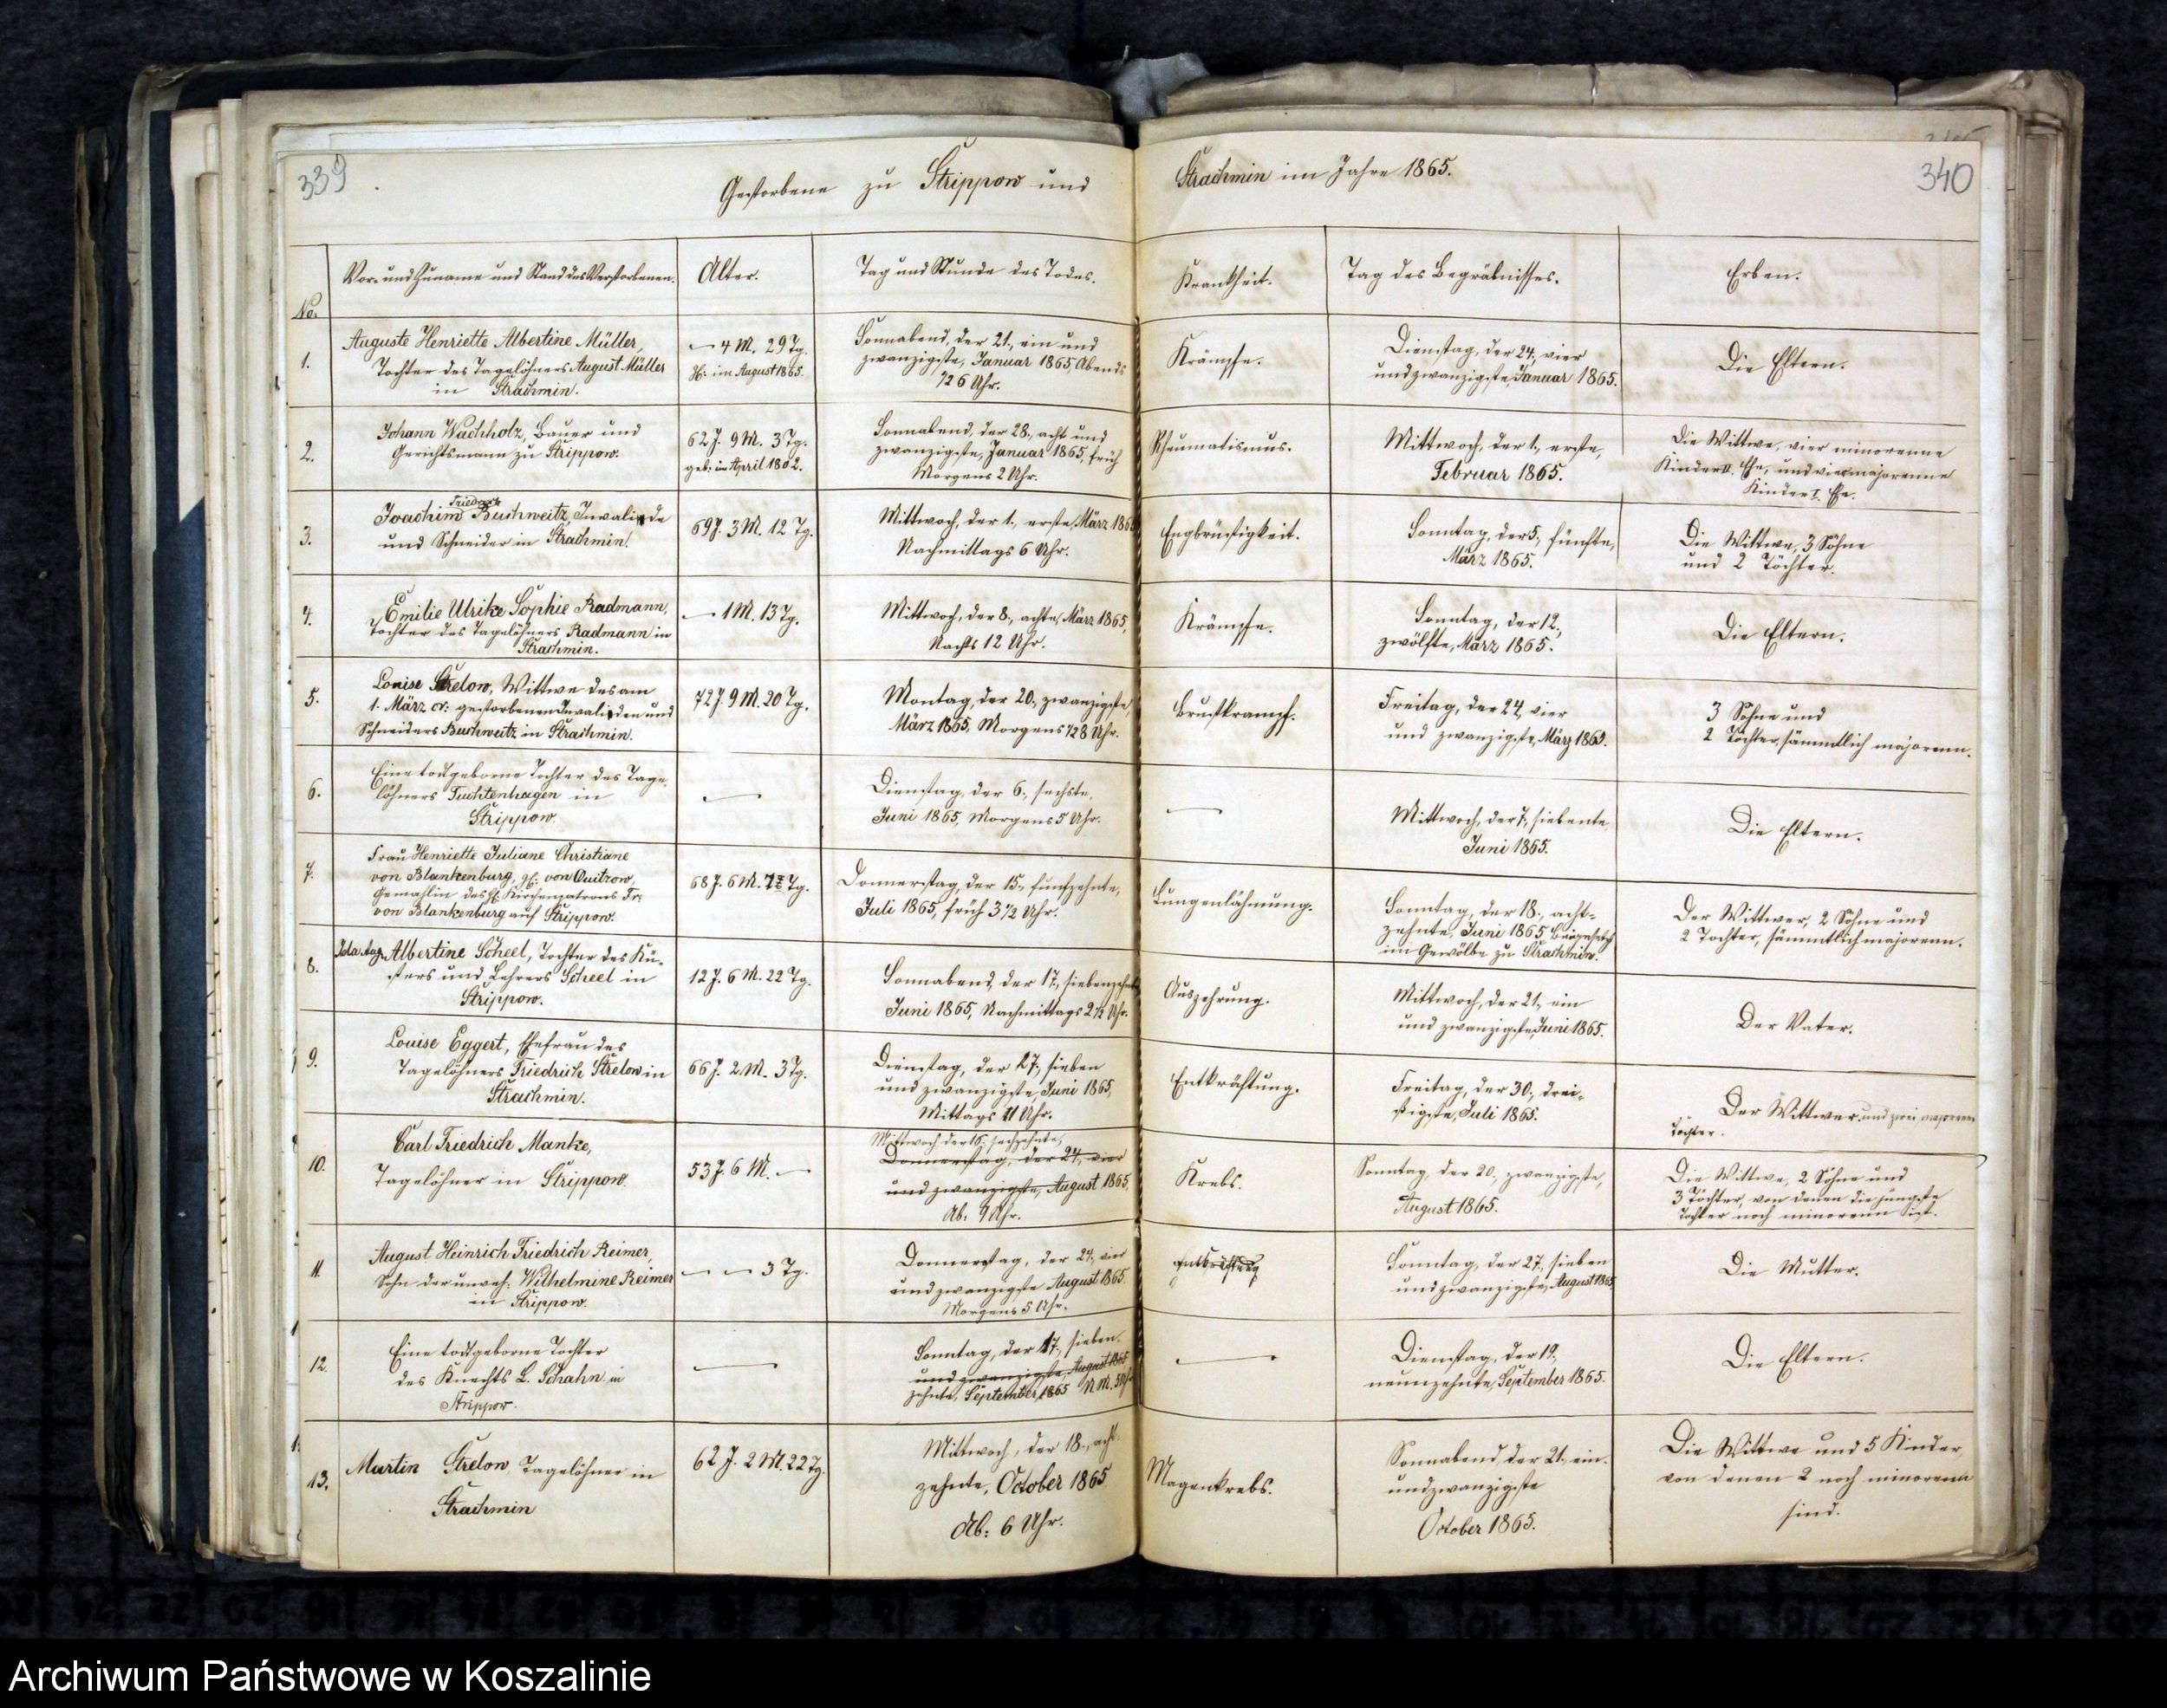 339
Gestorbene zu Strippow und
Strachmin im Jahre 1865.
340
No.
Vor- und Zuname und Stand des Verstorbenen.
Alter.
Tag und Stunde des Todes.
Krankheit.
Tag des Begräbnisses.
Erben.
1.
Auguste Henriette Albertine Müller,
Tochter des Tagelöhners August Müller
in Strachmin.
— 4 M. 29 Tg.
im August 1865.
Sonnabend, der 21., ein und
zwanzigste, Januar 1865, Abends
1/2 6 Uhr.
Krämpfe.
Dienstag, der 24., vier
und zwanzigste, Januar 1865.
Die Eltern.
2.
Johann Wachholz, Bauer und
Gerichtsmann zu Strippow.
62 J. 9 M. 3 Tg.
geb: im April 1802.
Sonnabend, der 28., acht und
zwanzigste, Januar 1865, früh
Morgens 2 Uhr.
Rheumatismus.
Mittwoch, der 1., erste,
Februar 1865.
Die Wittwe, vier minorenne
Kinder II. Ehe, und vier majorenne
Kinder I. Ehe.
3.
Friedrich
Joachim Buchweitz, Invalide
und Schneider in Strachmin.
69 J. 3 M. 12 Tg.
Mittwoch, der 1., erste, März 1865
Nachmittags 6 Uhr.
Engbrüstigkeit.
Sonntag, der 5., fünfte,
März 1865.
Die Wittwe, 3 Söhne
und 2 Töchter.
4.
Emilie Ulrike Sophie Radmann,
Tochter des Tagelöhners Radmann in
Strachmin.
— 1 M. 13 Tg.
Mittwoch, der 8., achte, März 1865,
Nachts 12 Uhr.
Krämpfe.
Sonntag, der 12.,
zwölfte, März 1865.
Die Eltern.
5.
Louise Strelow, Wittwe des am
1. März cr: gestorbenen Invaliden und
Schneiders Buchweitz in Strachmin.
72 J. 9 M. 20 Tg.
Montag, der 20., zwanzigste,
März 1865, Morgens 1/2 8 Uhr.
Brustkrampf.
Freitag, der 24., vier
und zwanzigste, März 1865.
3 Söhne und
2 Töchter, sämmtlich majorenn.
6.
Eine todtgeborne Tochter des Tage-
löhners Tuchtenhagen in
Strippow.
—
Dienstag, der 6., sechste,
Juni 1865, Morgens 5 Uhr.
—
Mittwoch, der 7., siebente
Juni 1865.
Die Eltern.
7.
Frau Henriette Juliane Christiane
von Blankenburg, von Quitzow,
Gemahlin des Kirchenpatrons Fr:
von Blankenburg auf Strippow.
68 J. 6 M. Tg.
Donnerstag, der 15., funfzehnte,
Juli 1865, früh 3 1/2 Uhr.
Lungenlähmung.
Sonntag, der 18., acht-
zehnte, Juni 1865 Beigesetzt
im Gewölbe zu Strachmin.
Der Wittwer, 2 Söhne und
2 Tochter, sämmtlich majorenn.
8.
Ida Aug. Albertine Scheel, Tochter des Kü-
sters und Lehrers Scheel in
Strippow.
12 J. 6 M. 22 Tg.
Sonnabend, der 17., siebenzehnte
Juni 1865, Nachmittags 2 1/2 Uhr.
Auszehrung.
Mittwoch, der 21., ein
und zwanzigste, Juni 1865.
Der Vater.
9.
Louise Eggert, Ehefrau des
Tagelöhners Friedrich Strelow in
Strachmin.
66 J. 2 M. 3 Tg.
Dienstag, der 27., sieben
und zwanzigste, Juni 1865,
Mittags 11 Uhr.
Entkräftung.
Freitag, der 30., drei-
ßigste, Juli 1865.
Der Wittwer und zwei majorenne
Töchter.
10.
Carl Friedrich Manke,
Tagelöhner in Strippow.
53 J. 6 M. —
Mittwoch der 16. sechzehnte,
Donnerstag, der 24., vier
und zwanzigste, August 1865,
Ab: 9 Uhr.
Krebs.
Sonntag, der 20., zwanzigste,
August 1865.
Die Wittwe, 2 Söhne und
3 Töchter, von denen die jüngste
Tochter noch minorenn ist.
11.
August Heinrich Friedrich Reimer,
Sohn der unverh: Wilhelmine Reimer
in Strippow.
— — 3 Tg.
Donnerstag, der 24., vier
und zwanzigste August 1865.
Morgens 5 Uhr.
Entkräftung
Sonntag, der 27., sieben
und zwanzigste, August 1865,
Die Mutter.
12.
Eine todtgeborne Tochter
des Knechts L. Schahn in
Strippow.
—
Sonntag, der 17., sieben-
und zwanzigste, August 1865
zehnte, September 1865 N.M. 5 Uhr
—
Dienstag, der 19.,
neunzehnte, September 1865.
Die Eltern.
13.
Martin Strelow, Tagelöhner in
Strachmin
62 J. 2 M. 22 Tg.
Mittwoch, der 18., acht-
zehnte, October 1865
Ab: 6 Uhr.
Magenkrebs.
Sonnabend, der 21., ein-
undzwanzigste
October 1865.
Die Wittwe und 5 Kinder,
von denen 2 noch minorenn
sind.
Archiwum Państwowe w Koszalinie